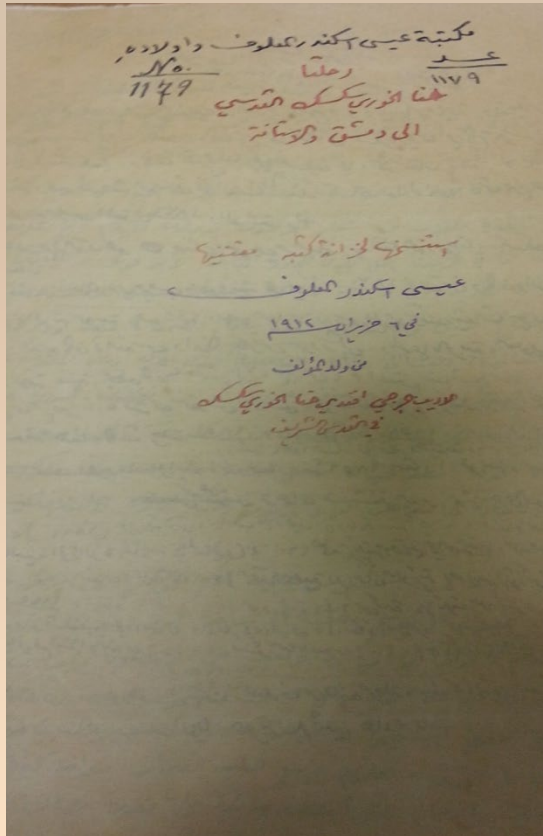 مكتبة عيسى اسكندر المعلوف واولاده
عـــدد
١١٧٩
No.
1179
رحلتا
حنا الخوري سكسك القدسي
الى دمشق والاستانة
استنسخها لخزانة كتبه مقتنيها
عيسى اسكندر المعلوف
في ٦ حزيران سنة ١٩١٢
من ولد المؤلف
جرجي افندي حنا الخوري سكسك
في القدس الشريف